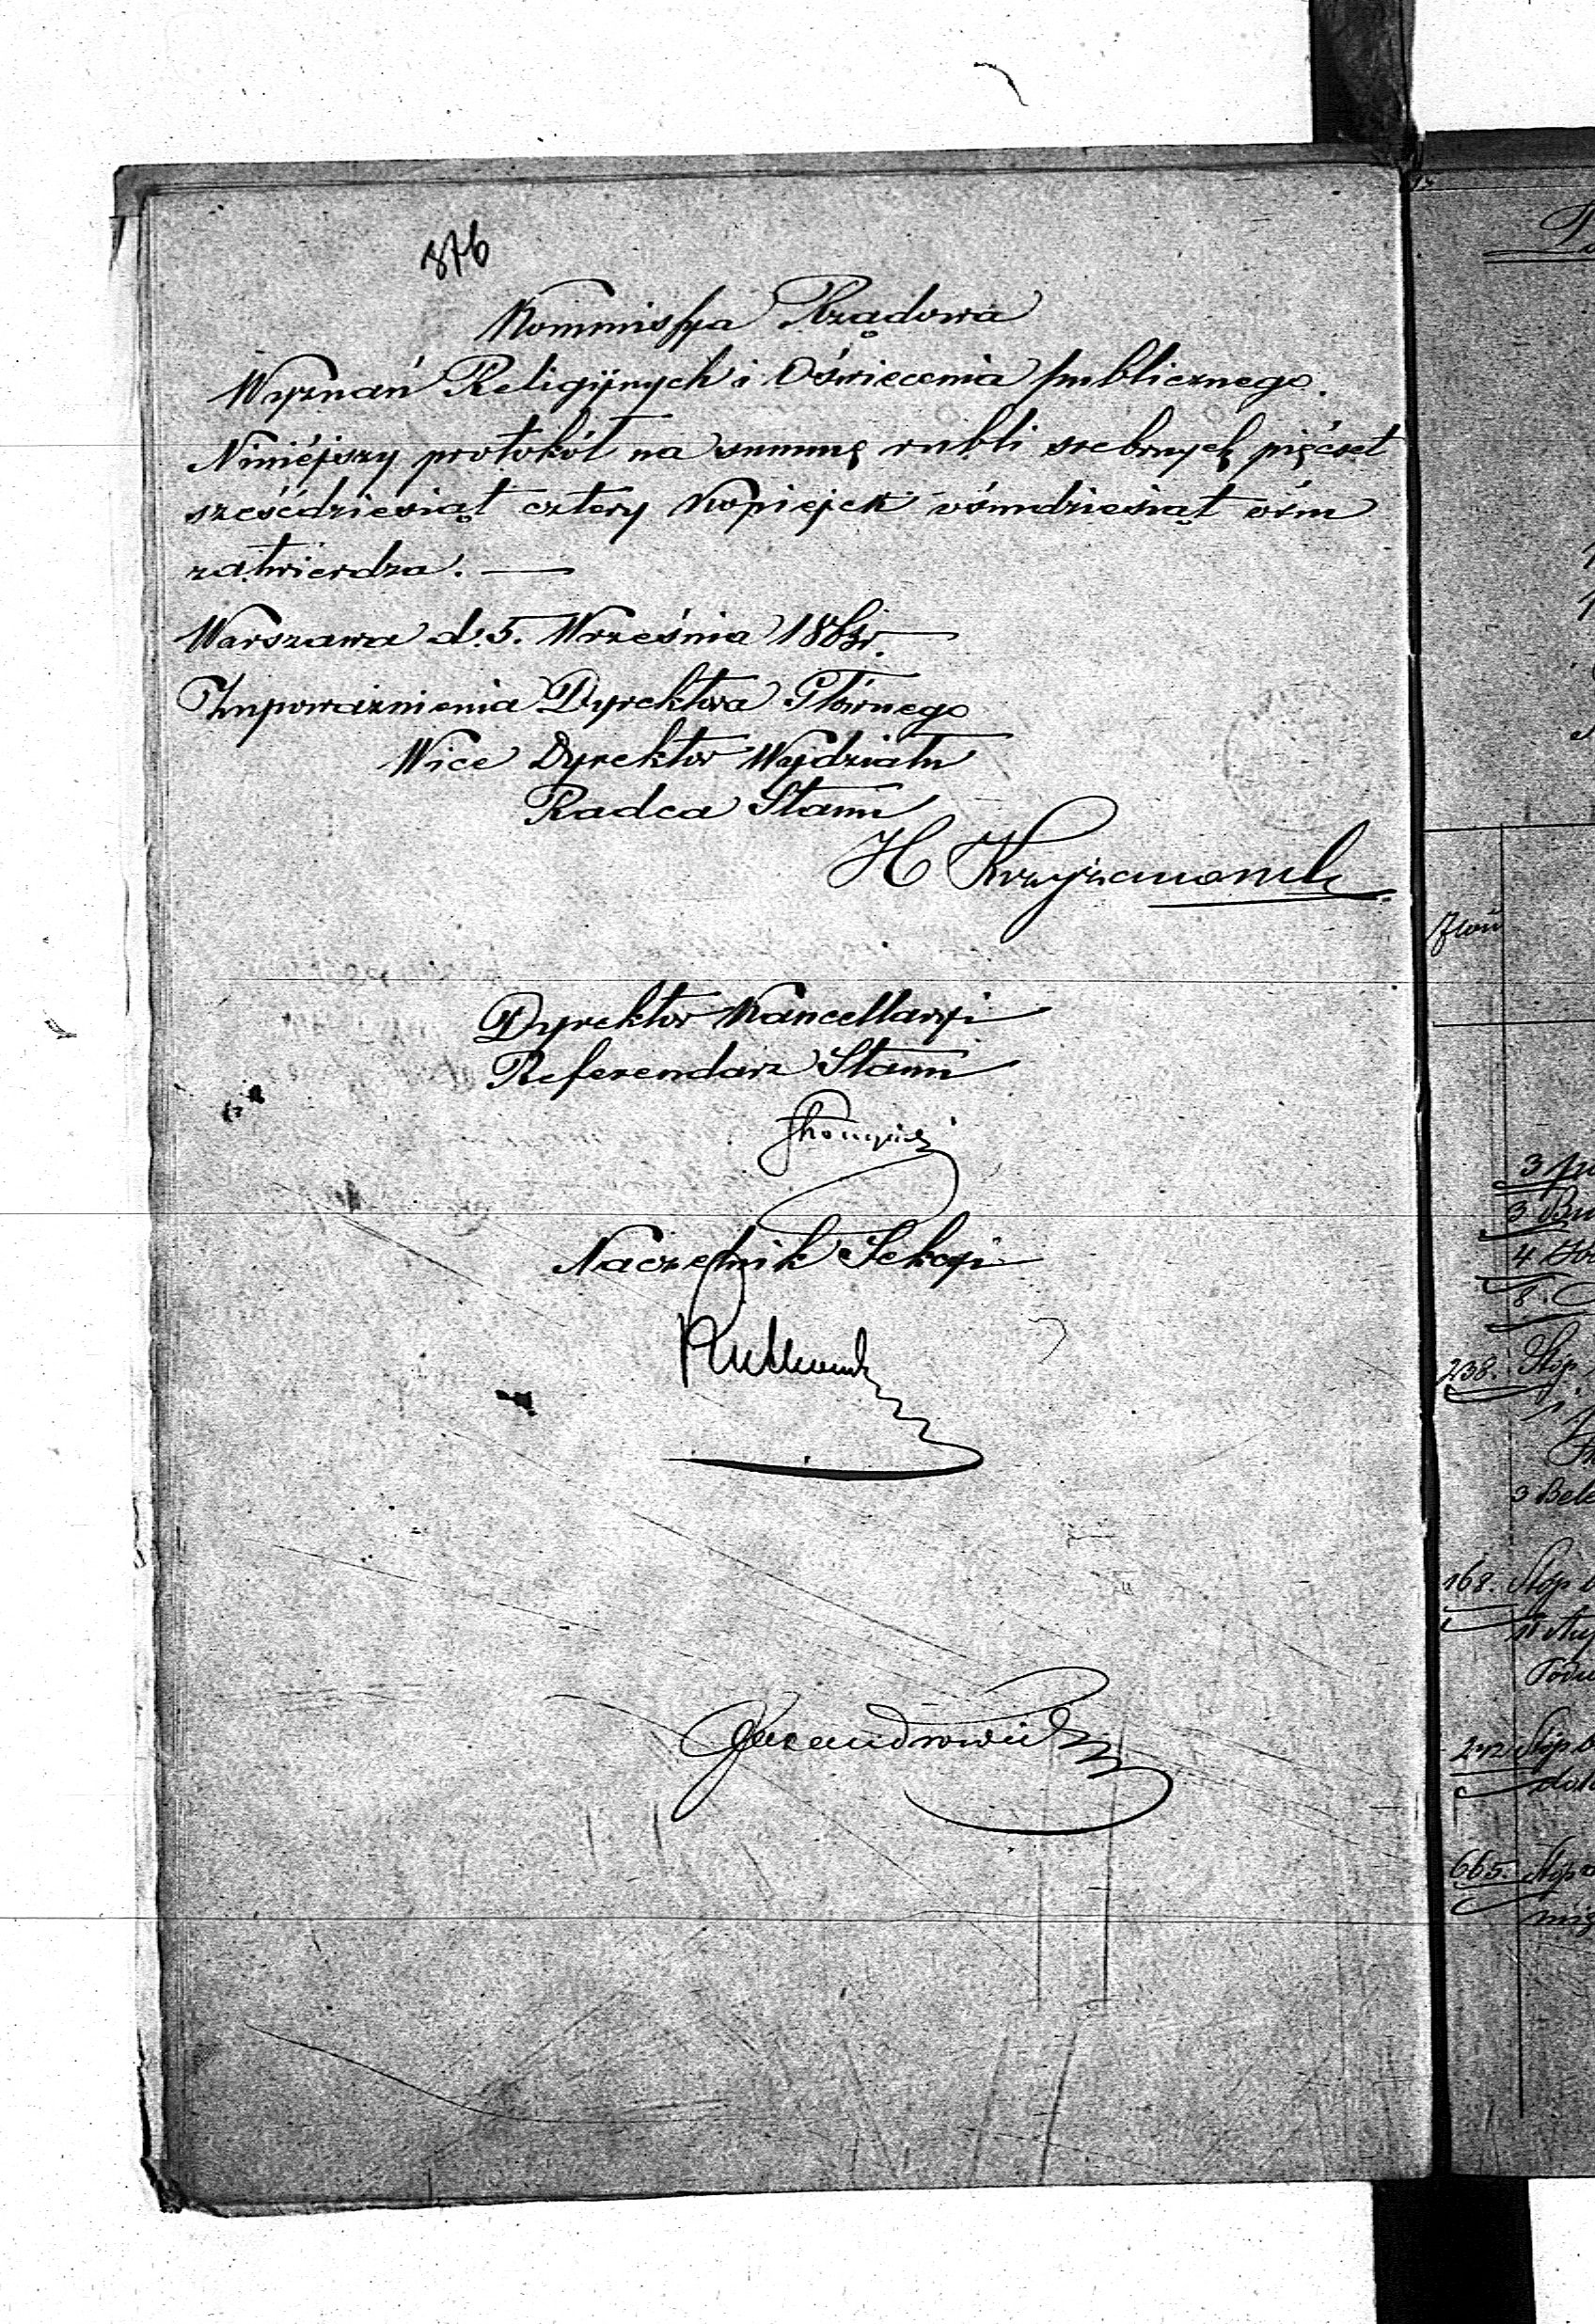 876
Kommissya Rządowa
Wyznań Religijnych i Oświecenia publicznego.
Niniéjszy protokół na summę rubli srebrnych pięćset
sześćdziesiąt cztery Kopiejek ośmdziesiąt ośm
zatwierdza. —
Warszawa d. 5. Września 1863 r.
Z upoważnienia Dyrektora Głównego
Wice Dyrektor Wydziału
Radca Stanu
H Krzyżanowski
Dyrektor Kancellaryi
Referendarz Stanu
Naczelnik Sekcyi
Rutkowski
3
3
4
8.
238. Stóp
3 Bele
168. Stóp
272 Stóp
665. Stóp